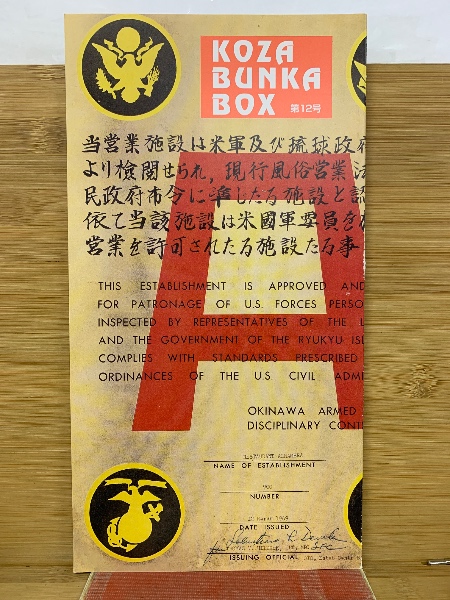 KOZA
BUNKA
BOX 第12号
当営業施設は米軍及び琉球政府
より検閲せられ,現行風俗営業法
民政府布令に準じたる施設と認
依て当該施設は米國軍要員を
営業を許可されたる施設たる事
A
THIS ESTABLISHMENT IS APPROVED AND
FOR PATRONAGE OF U.S. FORCES PERSO
INSPECTED BY REPRESENTATIVES OF THE
AND THE GOVERNMENT OF THE RYUKYU ISL
COMPLIES WITH STANDARDS PRESCRIBED
ORDINANCES OF THE U.S. CIVIL ADMI
OKINAWA ARMED
DISCIPLINARY CONT
NAME OF ESTABLISHMENT
NUMBER
DATE ISSUED
ISSUING OFFICIAL